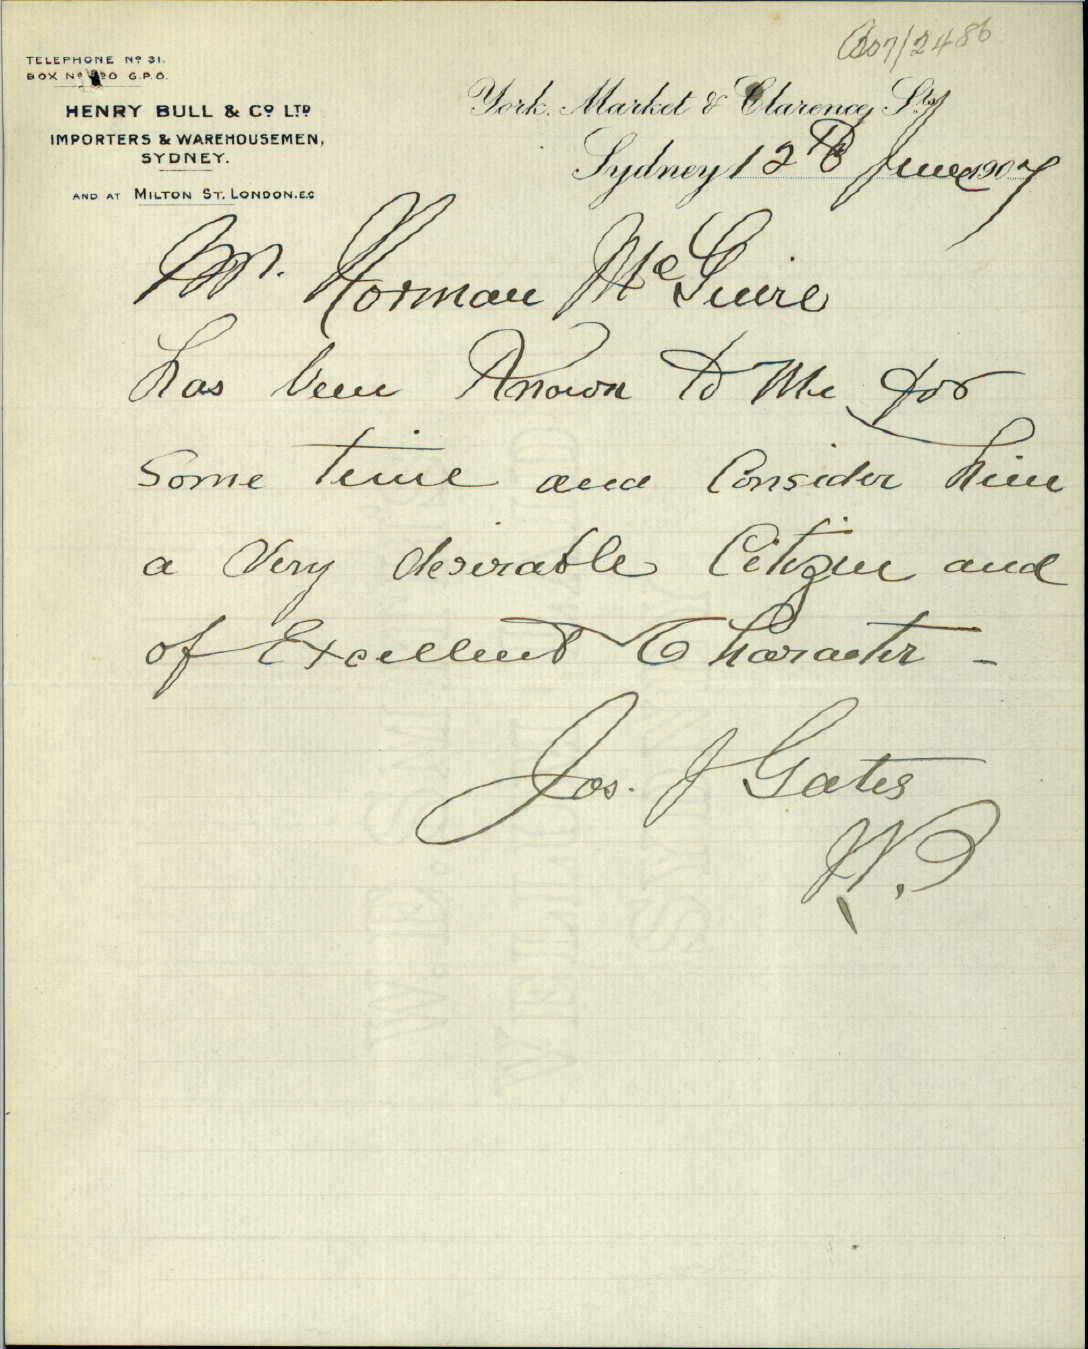 07/2486
TELEPHONE Nº 31.
BOX Nº G.P.O.
HENRY BULL & Cº LTD
IMPORTERS & WAREHOUSEMEN,
SYDNEY.
AND AT MILTON ST. LONDON. E.C
York. Market & Clarence Sts
Sydney 12th June 1907
Mr. Norman McGuire
has been Known to Me for
some time and Consider him
a Very desirable Citizen and
of Excellent Character -
Jos. J Gates